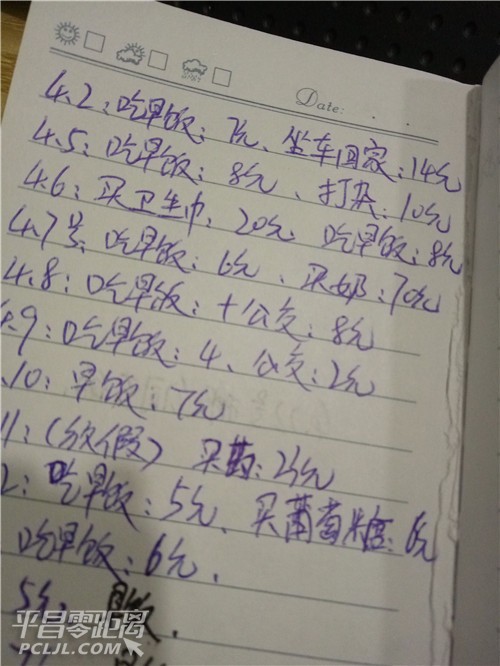 Date:
4.2：吃早饭：7元、坐车回家：14元
4.5：吃早饭：8元、打的：10元
4.6：买卫生巾：20元 吃早饭：8元
4.7号 吃早饭：6元、买奶：70元
4.8：吃早饭：+公交：8元
4.9：吃早饭：4、公交：2元
.10：早饭：7元
11：（放假）买药：25元
2：吃早饭：5元、买葡萄糖：6元
吃早饭：6元．
5元
平昌零距离
PCLJL.COM